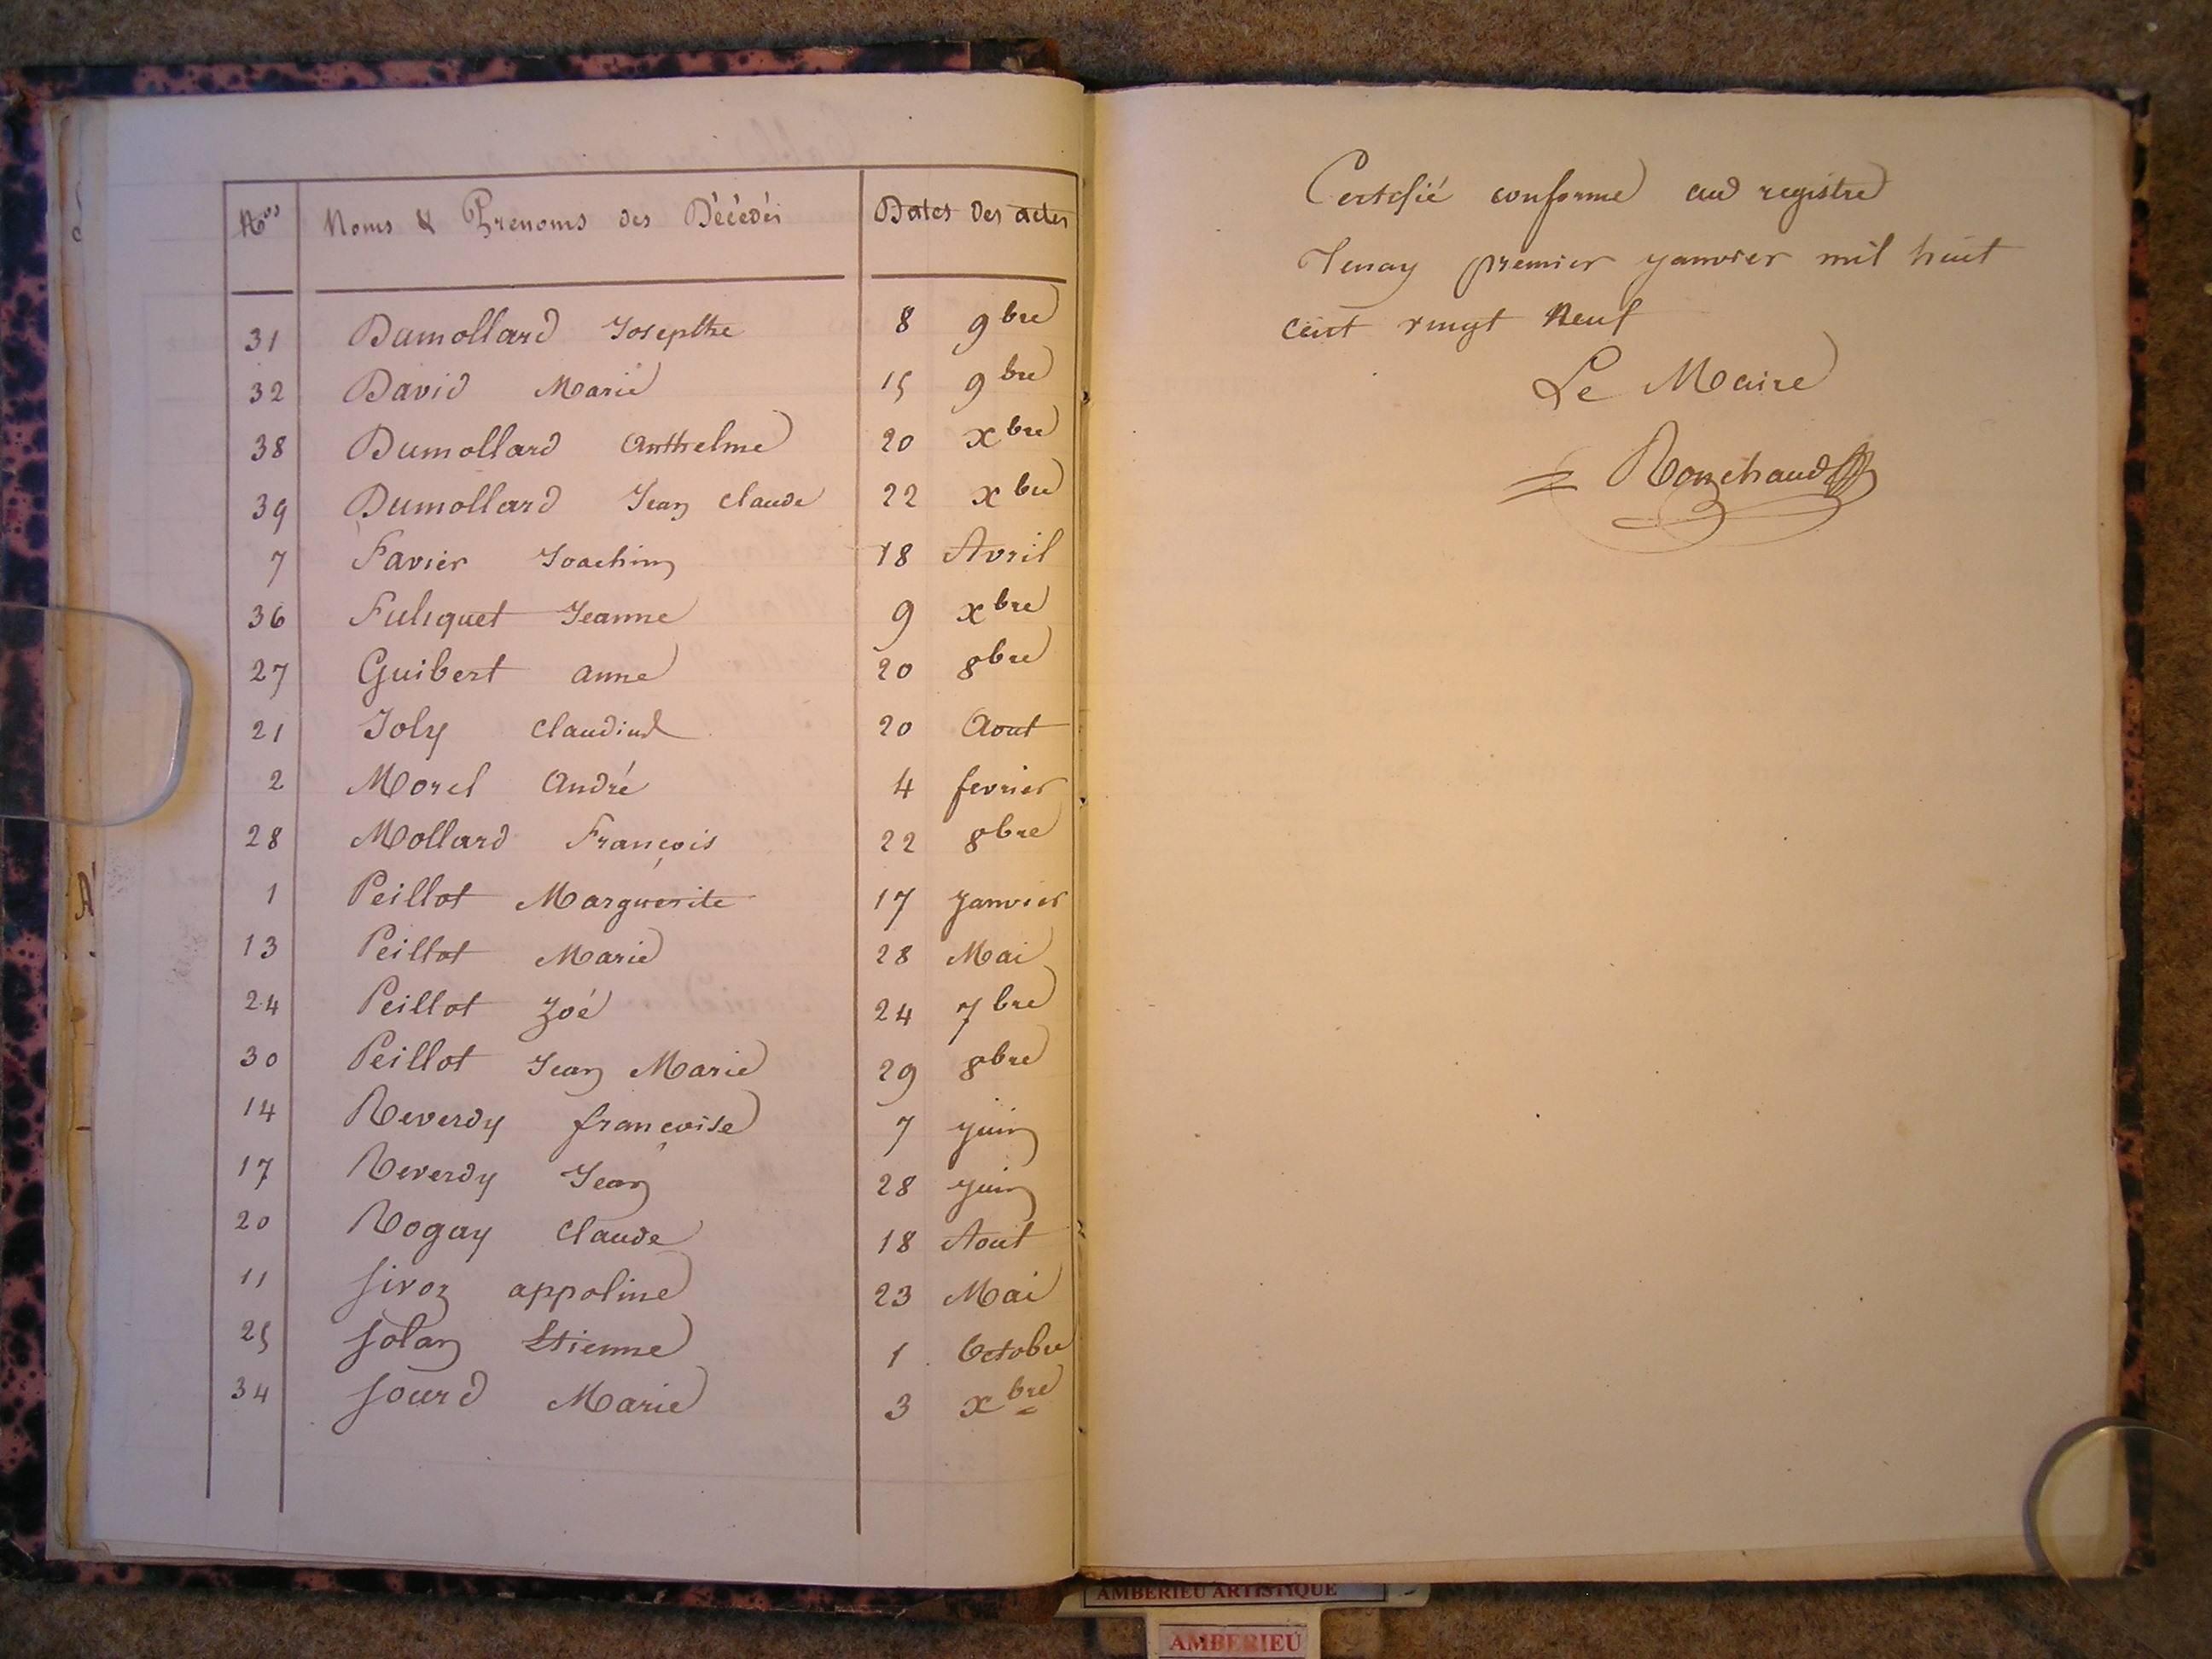 Nos Noms & Prenoms des Décédés Dates des actes
31 Dumollard Josepthe 8 9bre
32 David Marie 15 9bre
38 Dumollard Anthelme 20 xbre
39 Dumollard Jean Claude 22 xbre
7 Favier Joachim 18 Avril
36 Fuliquet Jeanne 9 xbre
27 Guibert anne 20 8bre
21 Joly Claudine 20 Aout
2 Morel André 4 fevrier
28 Mollard François 22 8bre
1 Peillot Marguerite 17 Janvier
13 Peillot Marie 28 Mai
24 Peillot Zoé 24 7bre
30 Peillot Jean Marie 29 8bre
14 Reverdy françoise 7 juin
17 Reverdy Jean 28 juin
20 Rogay Claude 18 Aout
11 Sivoz appoline 23 Mai
25 Solan Etienne 1 Octobre
34 Sourd Marie 3 xbre
Certifié conforme au registre
Tenay premier janvier mil huit
cent vingt Neuf
Le Maire
Ronchaud
AMBERIEU ARTISTIQUE
AMBERIEU